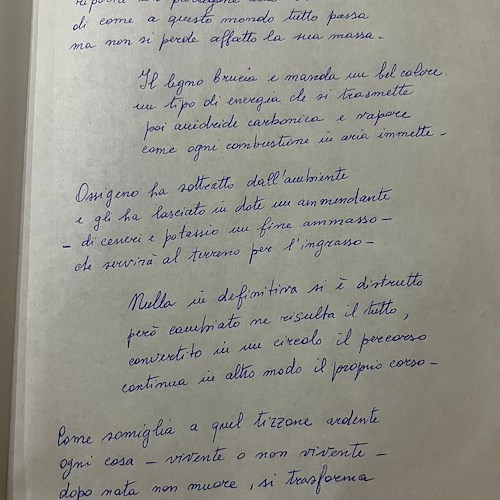 di come a questo mondo tutto passa
ma non si perde affatto la sua massa -
Il legno brucia e manda un bel calore
un tipo di energia che si trasmette
poi anidride carbonica e vapore
come ogni combustione in aria immette -
Ossigeno ha sottratto dall'ambiente
e gli ha lasciato in dote un ammendante
- di ceneri e potassio un fine ammasso -
che servirà al terreno per l'ingrasso -
Nulla in definitiva si è distrutto
però cambiato ne risulta il tutto,
convertito in un circolo il percorso
continua in altro modo il proprio corso -
Come somiglia a quel tizzone ardente
ogni cosa - vivente o non vivente -
dopo nata non muore, si trasforma